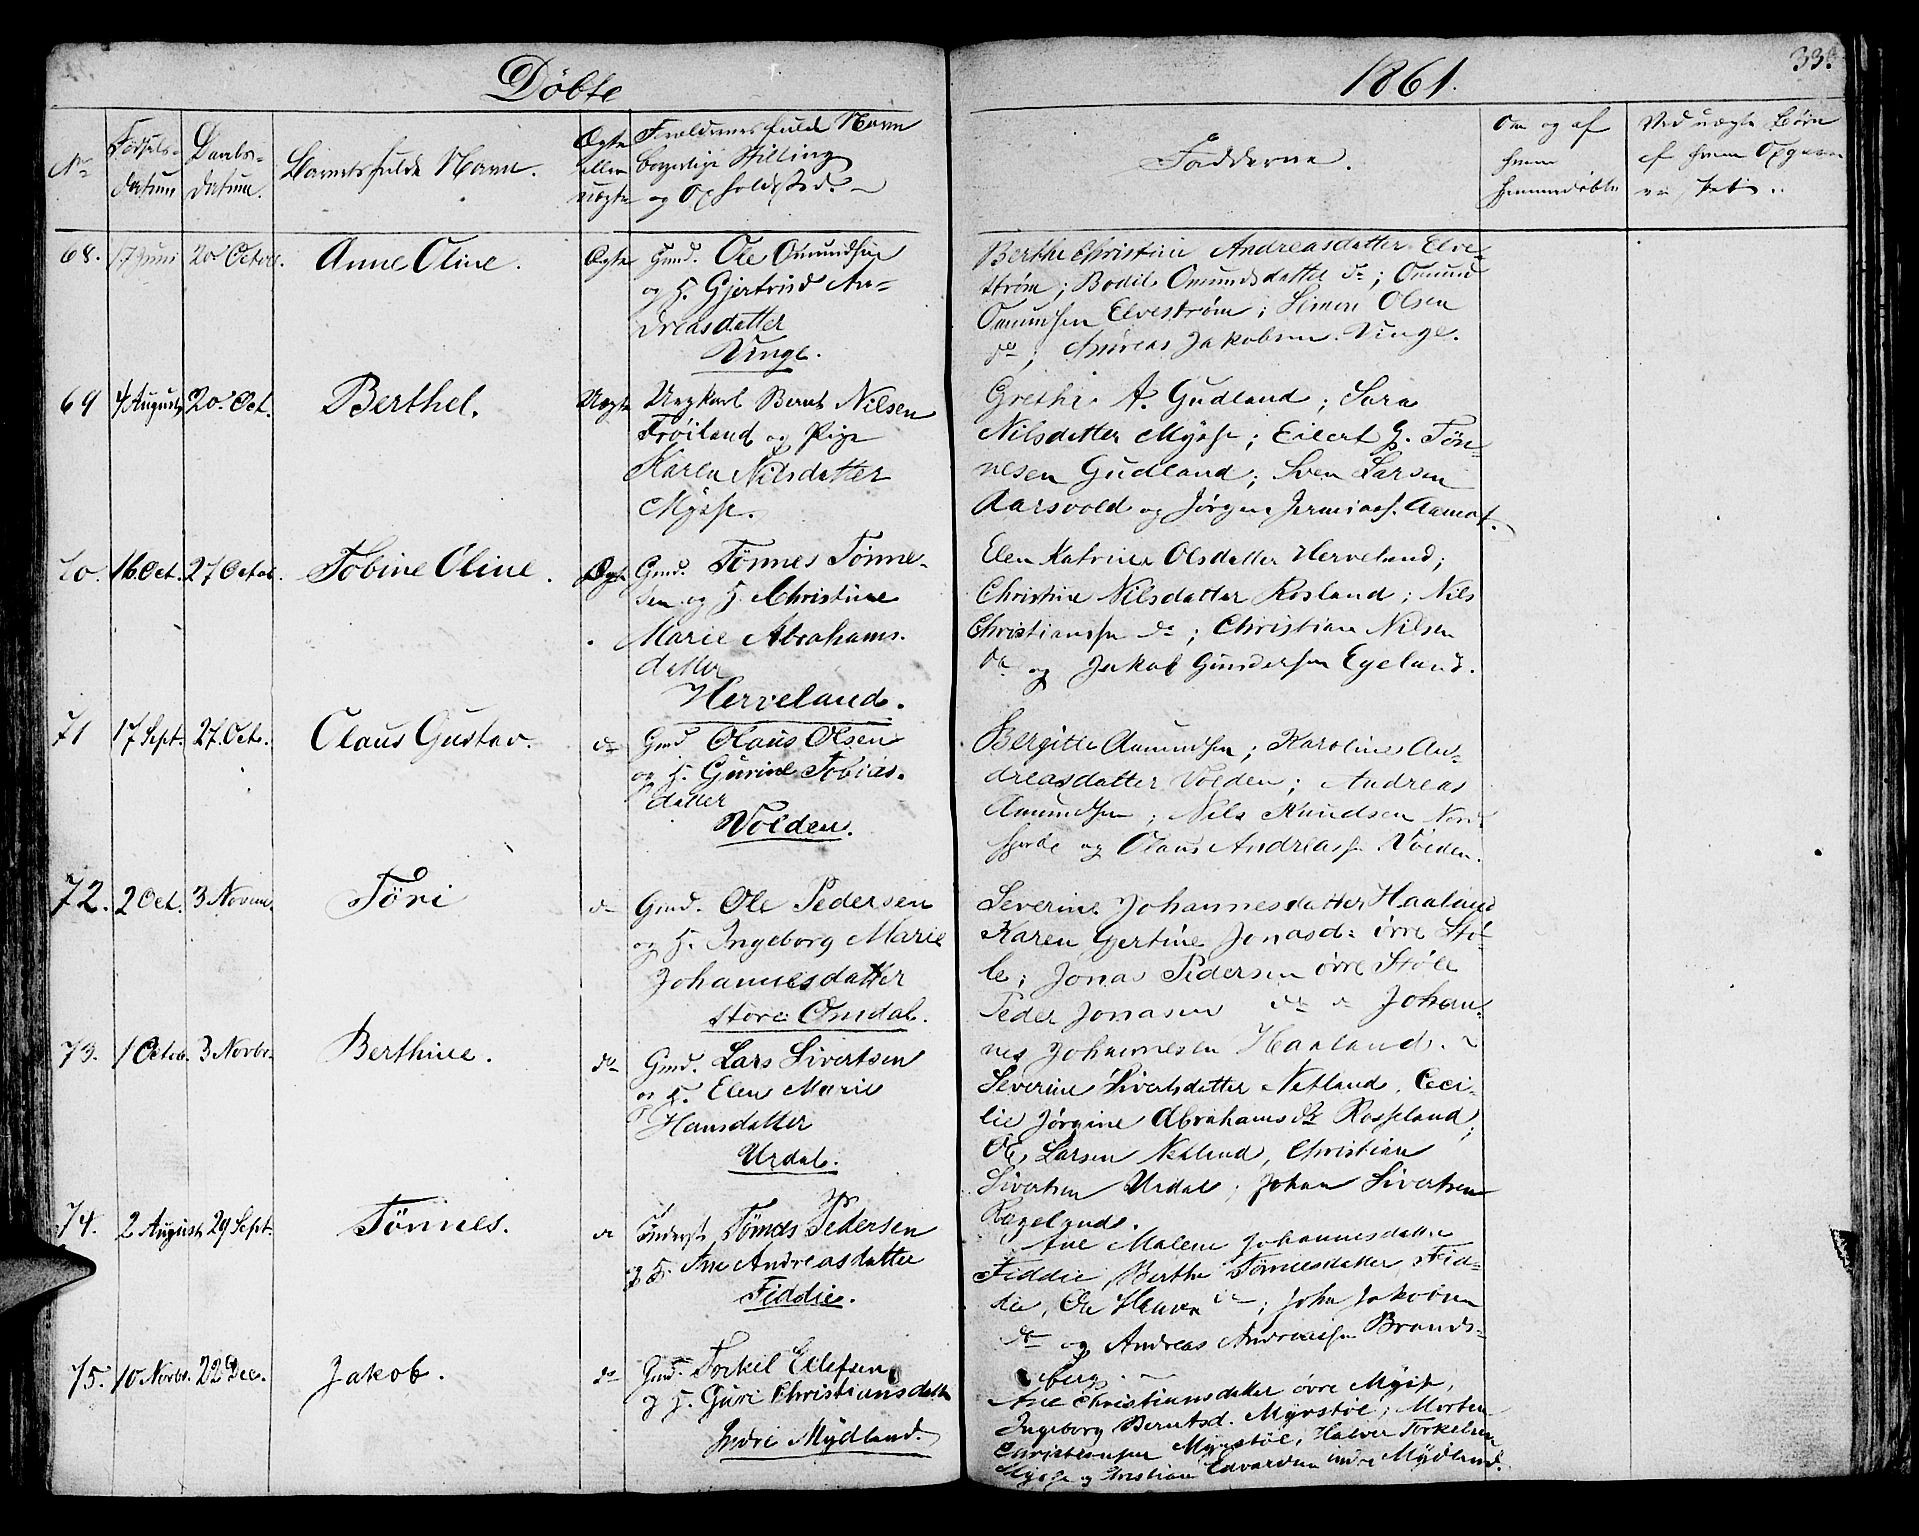 Döbte
1861.
33.
No
Fødsels-
datum
Daabs-
datum.
Barnets fulde Navn.
Ægte
eller
uægte
Forældrenes fulde Navn
borgerlige Stilling
og Opholdsted.
Fadderne.
Om og af
hvem
hjemmedøbte
Ved uægte Børn
af hvem Opgaven
er
68. 17 Juni 20 Octob. Anne Oline. Ægte Gmd. Ole Omundsen
og H. Gjertrud An-
dreasdatter
Vinge.
Berthe Christine Andreasdatter Elve-
strøm; Bodil Omundsdatter do; Omund
Omundsen Elvestrøm; Simon Olsen
do; Andreas Jakobsen Vinge.
69 4 August 20. Oct. Berthel. Uægte Ungkarl Bernt Nilsen
Frøiland og Pige
Karen Nilsdatter
Mysse.
Grethe A. Gudland; Sara
Nilsdatter Mysse; Eilert G. Tön-
nesen Gudland; Sven Larsen
Aarsvold og Jörgen Jermiass. Aamot.
70. 16 Oct. 27 Octob. Tobine Oline. Ægte Gmd. Tönnes Tönne-
sen og H. Christine
Marie Abrahams-
datter
Herveland.
Elen Katrine Olsdatter Herveland;
Christine Nilsdatter Rosland; Nils
Christiansen do; Christian Nilsen
do og Jakob Gundersen Egeland.
71 17 Sept. 27. Octo. Claus Gustav. do Gmd Olaus Olsen
og H. Gurine Tobias-
datter
Volden.
Bergitte Aamundsen; Karoline An-
dreasdatter Volden; Andreas
Aamundsen; Nils Knudsen Nord-
fjorde og Olaus Andreass. Volden.
72. 2 Oct. 3 Novem. Töri do Gmd. Ole Pedersen
og H. Ingeborg Marie
Johannesdatter
store Omdal.
Severine Johannesdatter Haaland
Karen Gjertine Jonasd: övre Stö-
le; Jonas Pedersen övre Stöle
Peder Jonasen do do Johan-
nes Johannesen Haaland.
73. 1 Octob. 3 Novbr. Berthine. do Gmd. Lars Sivertsen
og H. Elen Marie
Hansdatter
Urdal.
Severine Sivertsdatter Netland, Ceci-
lie Jörgine Abrahamsdr Rossland;
Ole Larsen Netland, Christian
Sivertsen Urdal; Johan Sivertsen
Rægelands.
74. 2 August 29 Sept. Tönnes. do Tönnes Pedersen
og H. Ane Andreasdatter
Fiddie.
Ane Malene Johannesdatter
Fiddie, Berthe Tönnesdatter Fid-
die, do; John Jakobsen
do og Andreas Andreassen Brands-
berg.
75. 10 Novbr. 22 Dec. Jakob. do Gmd. Torkel Ellefsen
og H. Guri Christiansdatter
Indre Mydland.
Ane Christiansdatter övre Mysse,
Ingeborg Berntsd. Myrstöl; Morten
Christiansen Myrstöl; Halvor Torkelsen
Mysse og Christian Edvardsen indre Mydland.